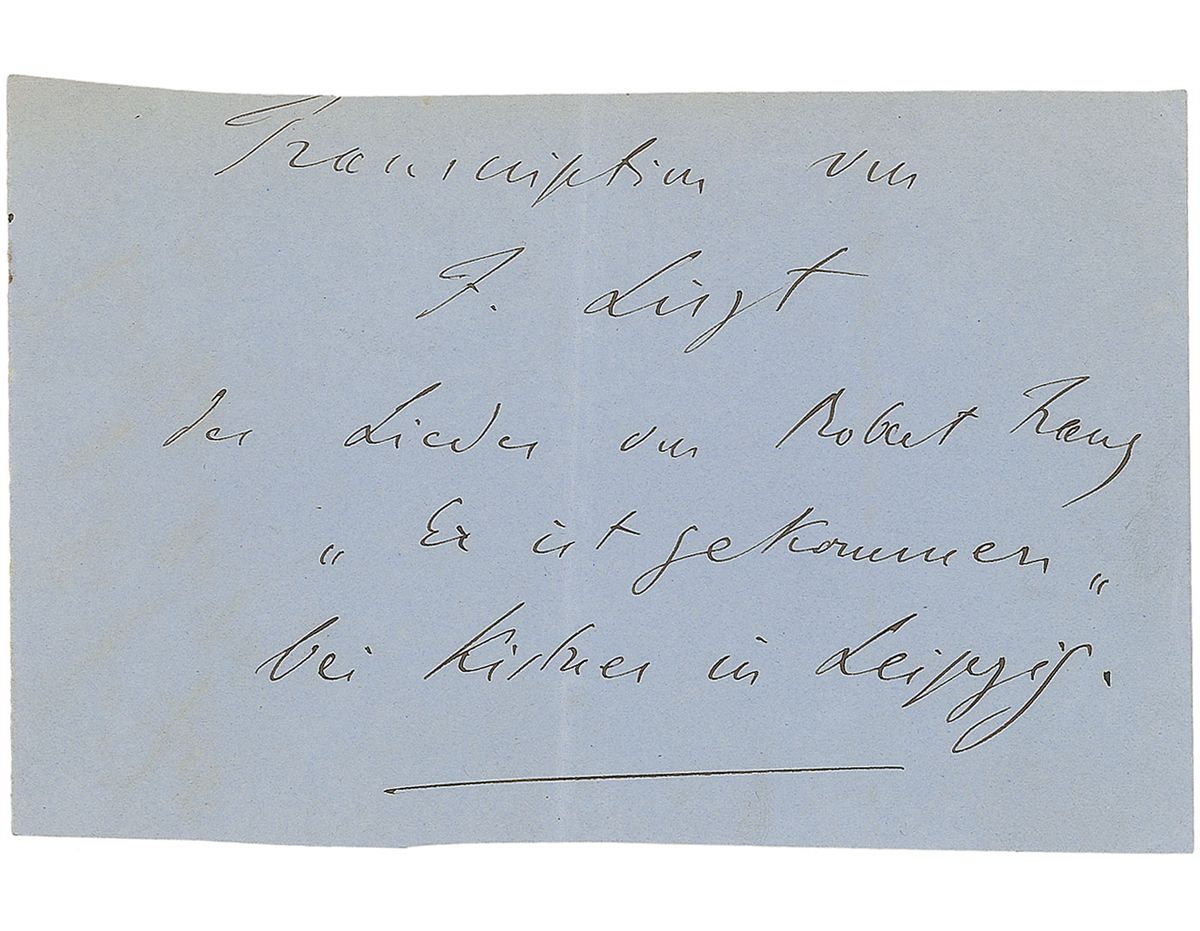 Transcription von
F. Liszt
der Lieder von Robert Franz
„ Er ist gekommen „
bei Kistner in Leipzig.